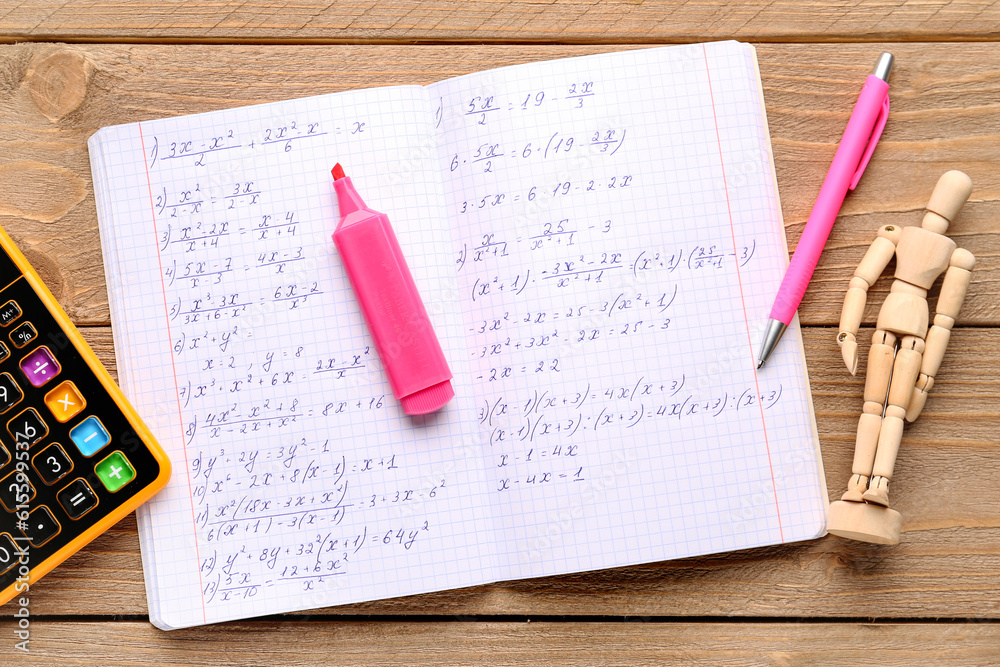 1) (3x - x²)/2 + (2x² - x)/6 = x
2) x²/(2-x) = 3x/(2-x)
3) (x² - 2x)/(x+4) = (x-4)/(x+4)
4) (5x-7)/(x-3) = (4x-3)/x
5) (x³ - 3x)/(3x+6-x²) = (6x-2)/x³
6) x² + y²
x = 2, y = 8
7) x³ + x² + 6x - (2x - x²)/x
8) (4x² - x² + 8)/(x - 2x + x²) = 8x + 16
9) y³ + 2y = 3y² - 1
10) x⁶ - 2x + 8(x-1) = x+1
11) x²(18x - 3x + x²)/(6(x+1) - 3(x-1)) = 3 + 3x - 6²
12) y² + 8y + 32²(x+1) = 64y²
13) 5x/(x-10) = (12+6x²)/x²
1) 5x/2 = 19 - 2x/3
6 · 5x/2 = 6 · (19 - 2x/3)
3 · 5x = 6 · 19 - 2 · 2x
2) x/(x²+1) = 25/(x²+1) - 3
(x²+1) · (-3x² - 2x)/(x²+1) = (x²+1) · (25/(x²+1) - 3)
-3x² - 2x = 25 - 3(x²+1)
-3x² + 3x² - 2x = 25 - 3
-2x = 22
3) (x-1)(x+3) = 4x(x+3)
(x-1)(x+3) : (x+3) = 4x(x+3) : (x+3)
x - 1 = 4x
x - 4x = 1
M+
%
÷
9
×
6
-
3
+
2
=
.
0
Adobe Stock | #615599537